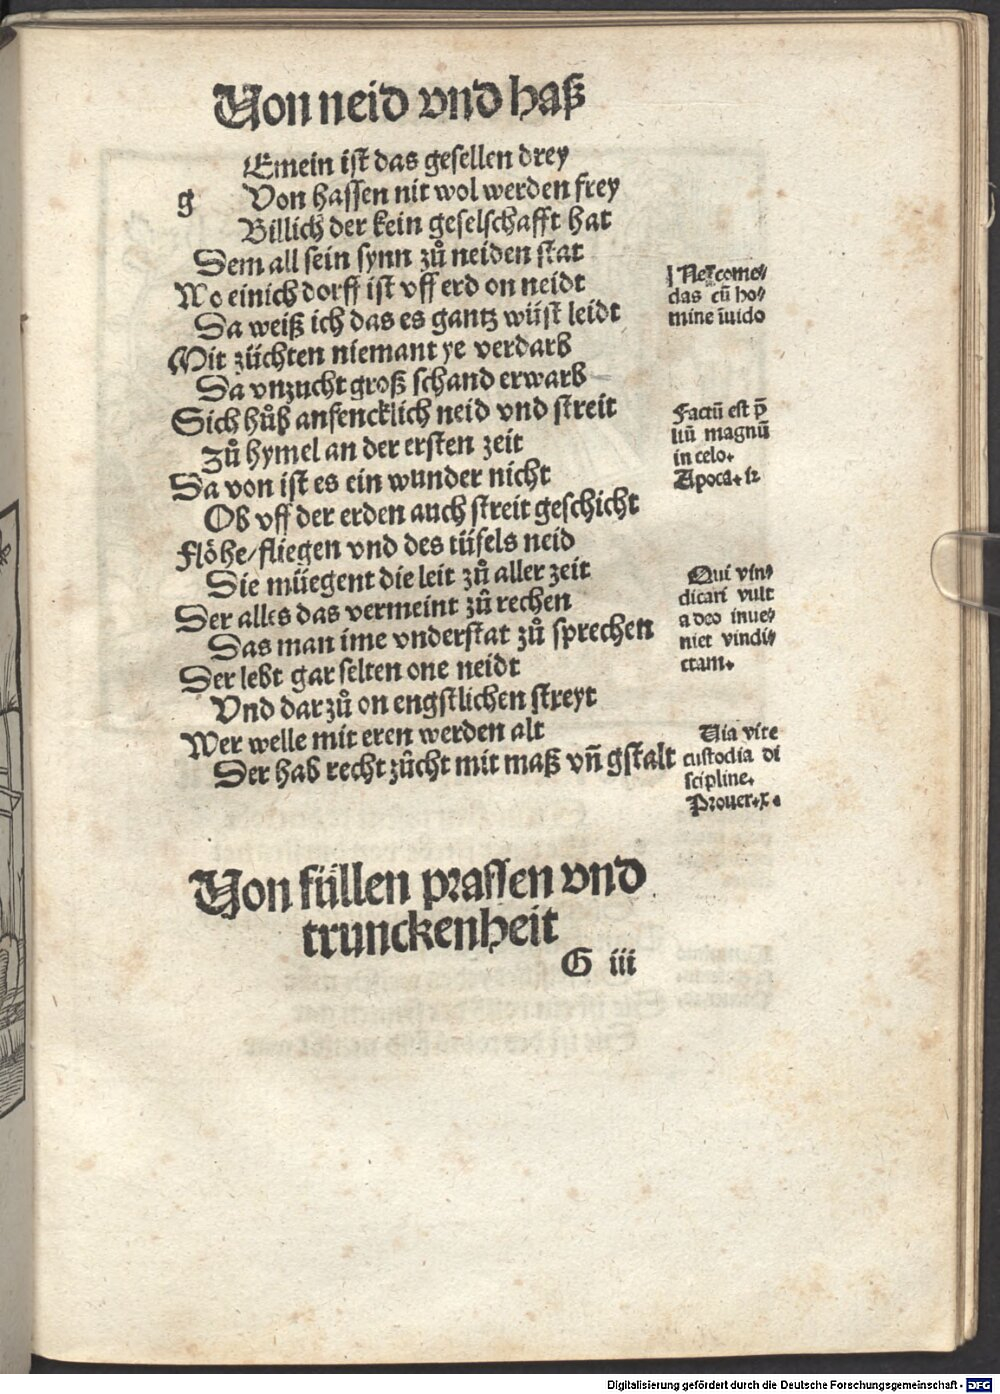 Von neid vnd haß
Emein ist das gesellen drey
g Von hassen nit wol werden frey
Billich der kein geselschafft hat
Dem all sein synn zů neiden stat
Wo einich dorff ist vff erd on neidt
Da weiß ich das es gantz wüst leidt
Mit züchten niemant ye verdarb
Da vnzucht groß schand erwarb
Sich hůb anfencklich neid vnd streit
Zů hymel an der ersten zeit
Da von ist es ein wunder nicht
Ob vff der erden auch streit geschicht
Flöhe/fliegen vnd des tüfels neid
Die müegent die leit zů aller zeit
Der alles das vermeint zů rechen
Das man ime vnderstat zů sprechen
Der lebt gar selten one neidt
Vnd darzů on engstlichen streyt
Wer welle mit eren werden alt
Der hab recht zůcht mit maß vñ gstalt
Ne come⸗
das cũ ho⸗
mine ĩuido
Factũ est p̄
liũ magnũ
in celo.
Apoca. iz
Qui vin⸗
dicari vult
a deo inue⸗
niet vindi⸗
ctam.
Via vite
custodia di
scipline.
Prouer.x.
Von füllen prassen vnd
trunckenheit
G iii
Digitalisierung gefördert durch die Deutsche Forschungsgemeinschaft - DFG